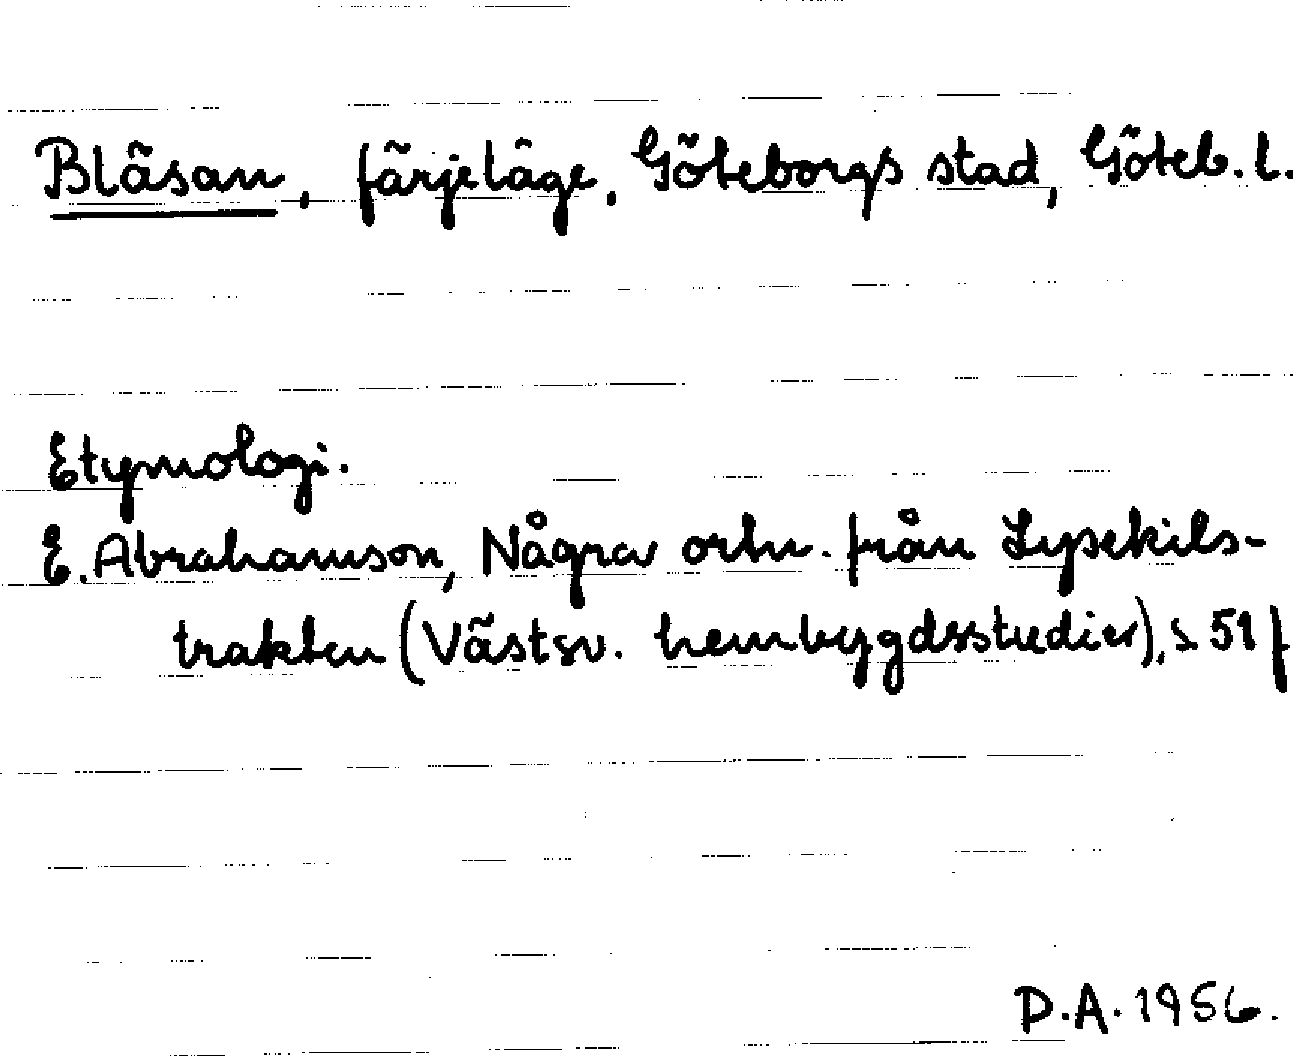 Bläsan, färjeläge, Göteborgs stad, Göteb. l.
Etymologi.
E. Abrahamson, Några ortn. från Lysekils-
trakten (Västsv. hembygdsstudier), s 51 f
D.A. 1956.